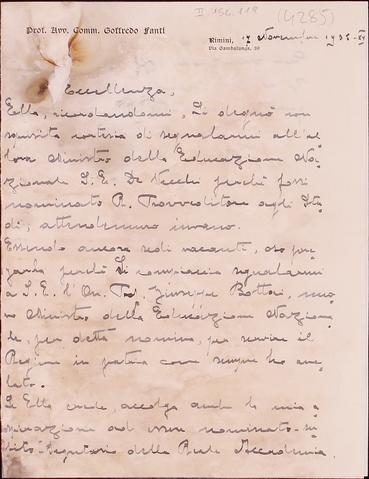 II-156.119
(4285)
Prof. Avv. Comm. Goffredo Fanti
Rimini, 17 Novembre 1936-XV
Via Gambalunga, 29
Eccellenza,
Ella, ricordandomi, si degnò con
squisita cortesia di segnalarmi all'al=
lora Ministro della Educazione Na=
zionale S. E. De Vecchi perchè fossi
nominato R. Provveditore agli Stu=
di, attendemmo invano.
Essendo ancora sedi vacanti, oso pre=
garla perchè Si compiaccia segnalarmi
a S. E. l'On. Giuseppe Bottai, nuo=
vo Ministro della Educazione Naziona=
le, per detta nomina, per servire il
Regime in patria come sempre ho ane=
lato.
Se Ella crede, accolga anche la mia a=
spirazione ad essere nominato
Segretario della Reale Accademia